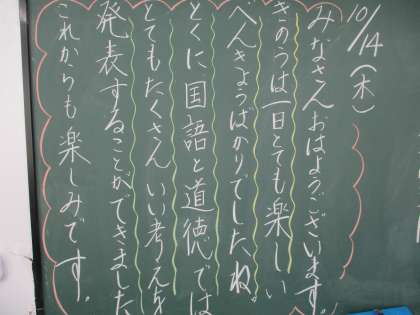 10/14(木)
みなさんおはようございます。
きのうは一日とても楽しい
べんきょうばかりでしたね。
とくに国語と道徳では
とてもたくさんいい考えを
発表することができました
これからも楽しみです。